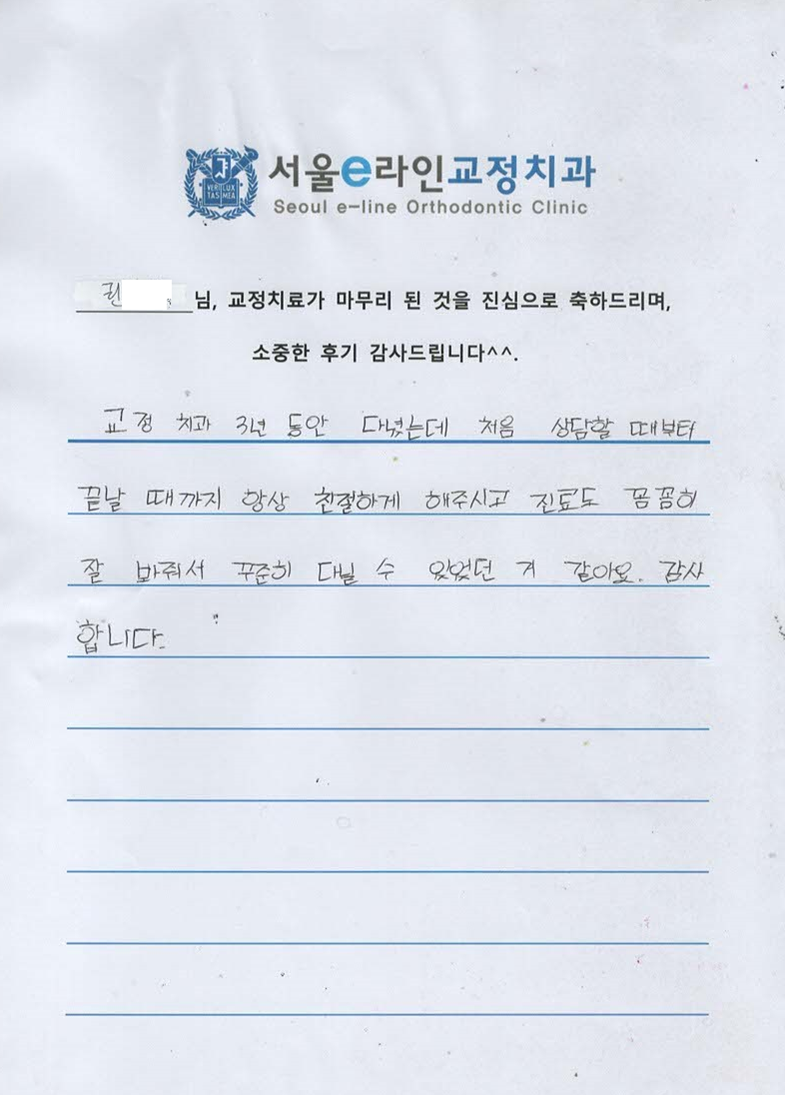 서울e라인교정치과
Seoul e-line Orthodontic Clinic
VERI LUX
TAS MEA
권 님, 교정치료가 마무리 된 것을 진심으로 축하드리며,
소중한 후기 감사드립니다^^.
교정 치과 3년 동안 다녔는데 처음 상담할 때부터
끝날 때까지 항상 친절하게 해주시고 진료도 꼼꼼히
잘 봐줘서 꾸준히 다닐 수 있었던 거 같아요. 감사
합니다.